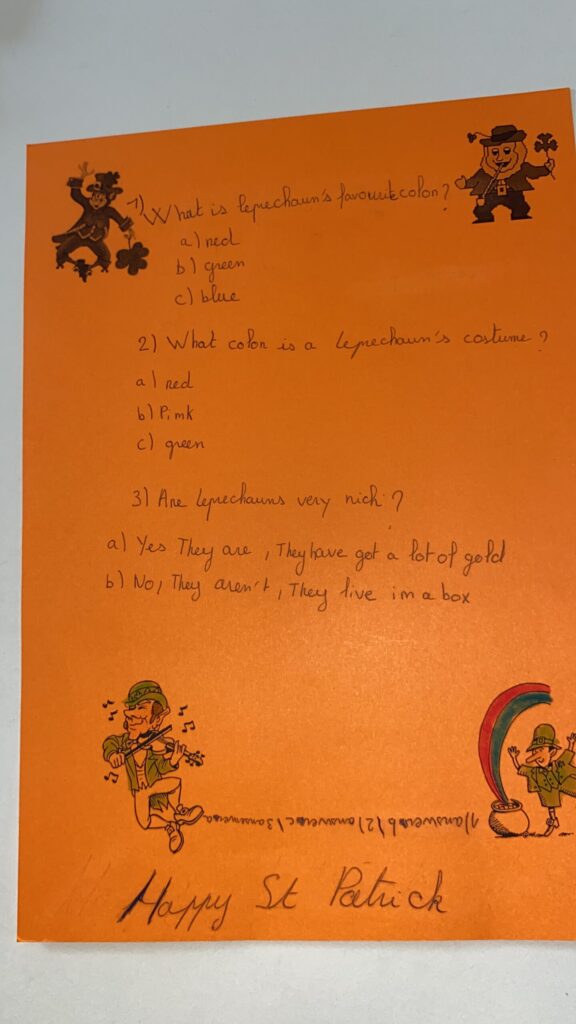 1) What is leprechaun's favourite color?
a) red
b) green
c) blue
2) What color is a leprechaun's costume?
a) red
b) Pink
c) green
3) Are Leprechauns very rich?
a) Yes They are, They have got a lot of gold
b) No, They aren't, They live in a box
1/answer b/2/answer c/3 answer a
Happy St Patrick